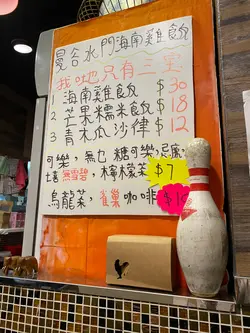 曼谷水門海南雞飯
我哋只有三里
1 海南雞飯 $30
2 芒果糯米飯 $18
3 青木瓜沙律 $12
可樂，無乜糖可樂，忌廉，
無雪碧，檸檬茶 $7
烏龍茶，雀巢咖啡 $10